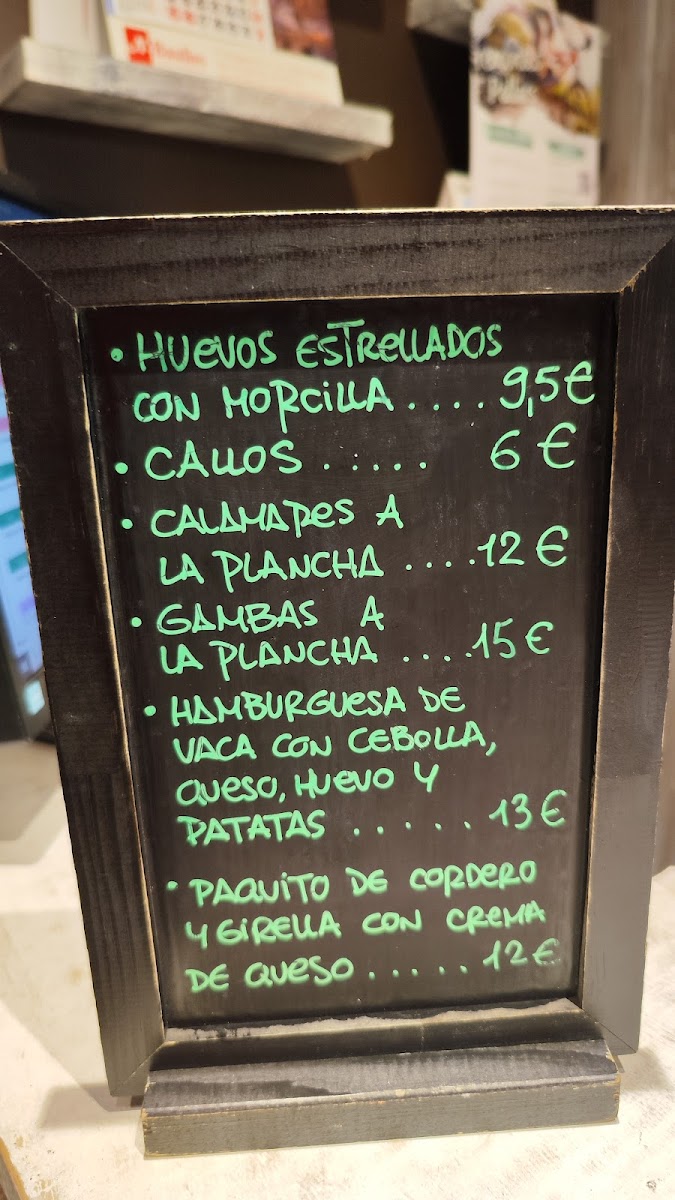 • HUEVOS ESTRELLADOS
CON MORCILLA .... 9,5€
• CALLOS ..... 6€
• CALAMARES A
LA PLANCHA ....12€
• GAMBAS A
LA PLANCHA ....15€
• HAMBURGUESA DE
VACA CON CEBOLLA,
QUESO, HUEVO Y
PATATAS ...... 13€
• PAQUITO DE CORDERO
Y GIRELLA CON CREMA
DE QUESO ..... 12€